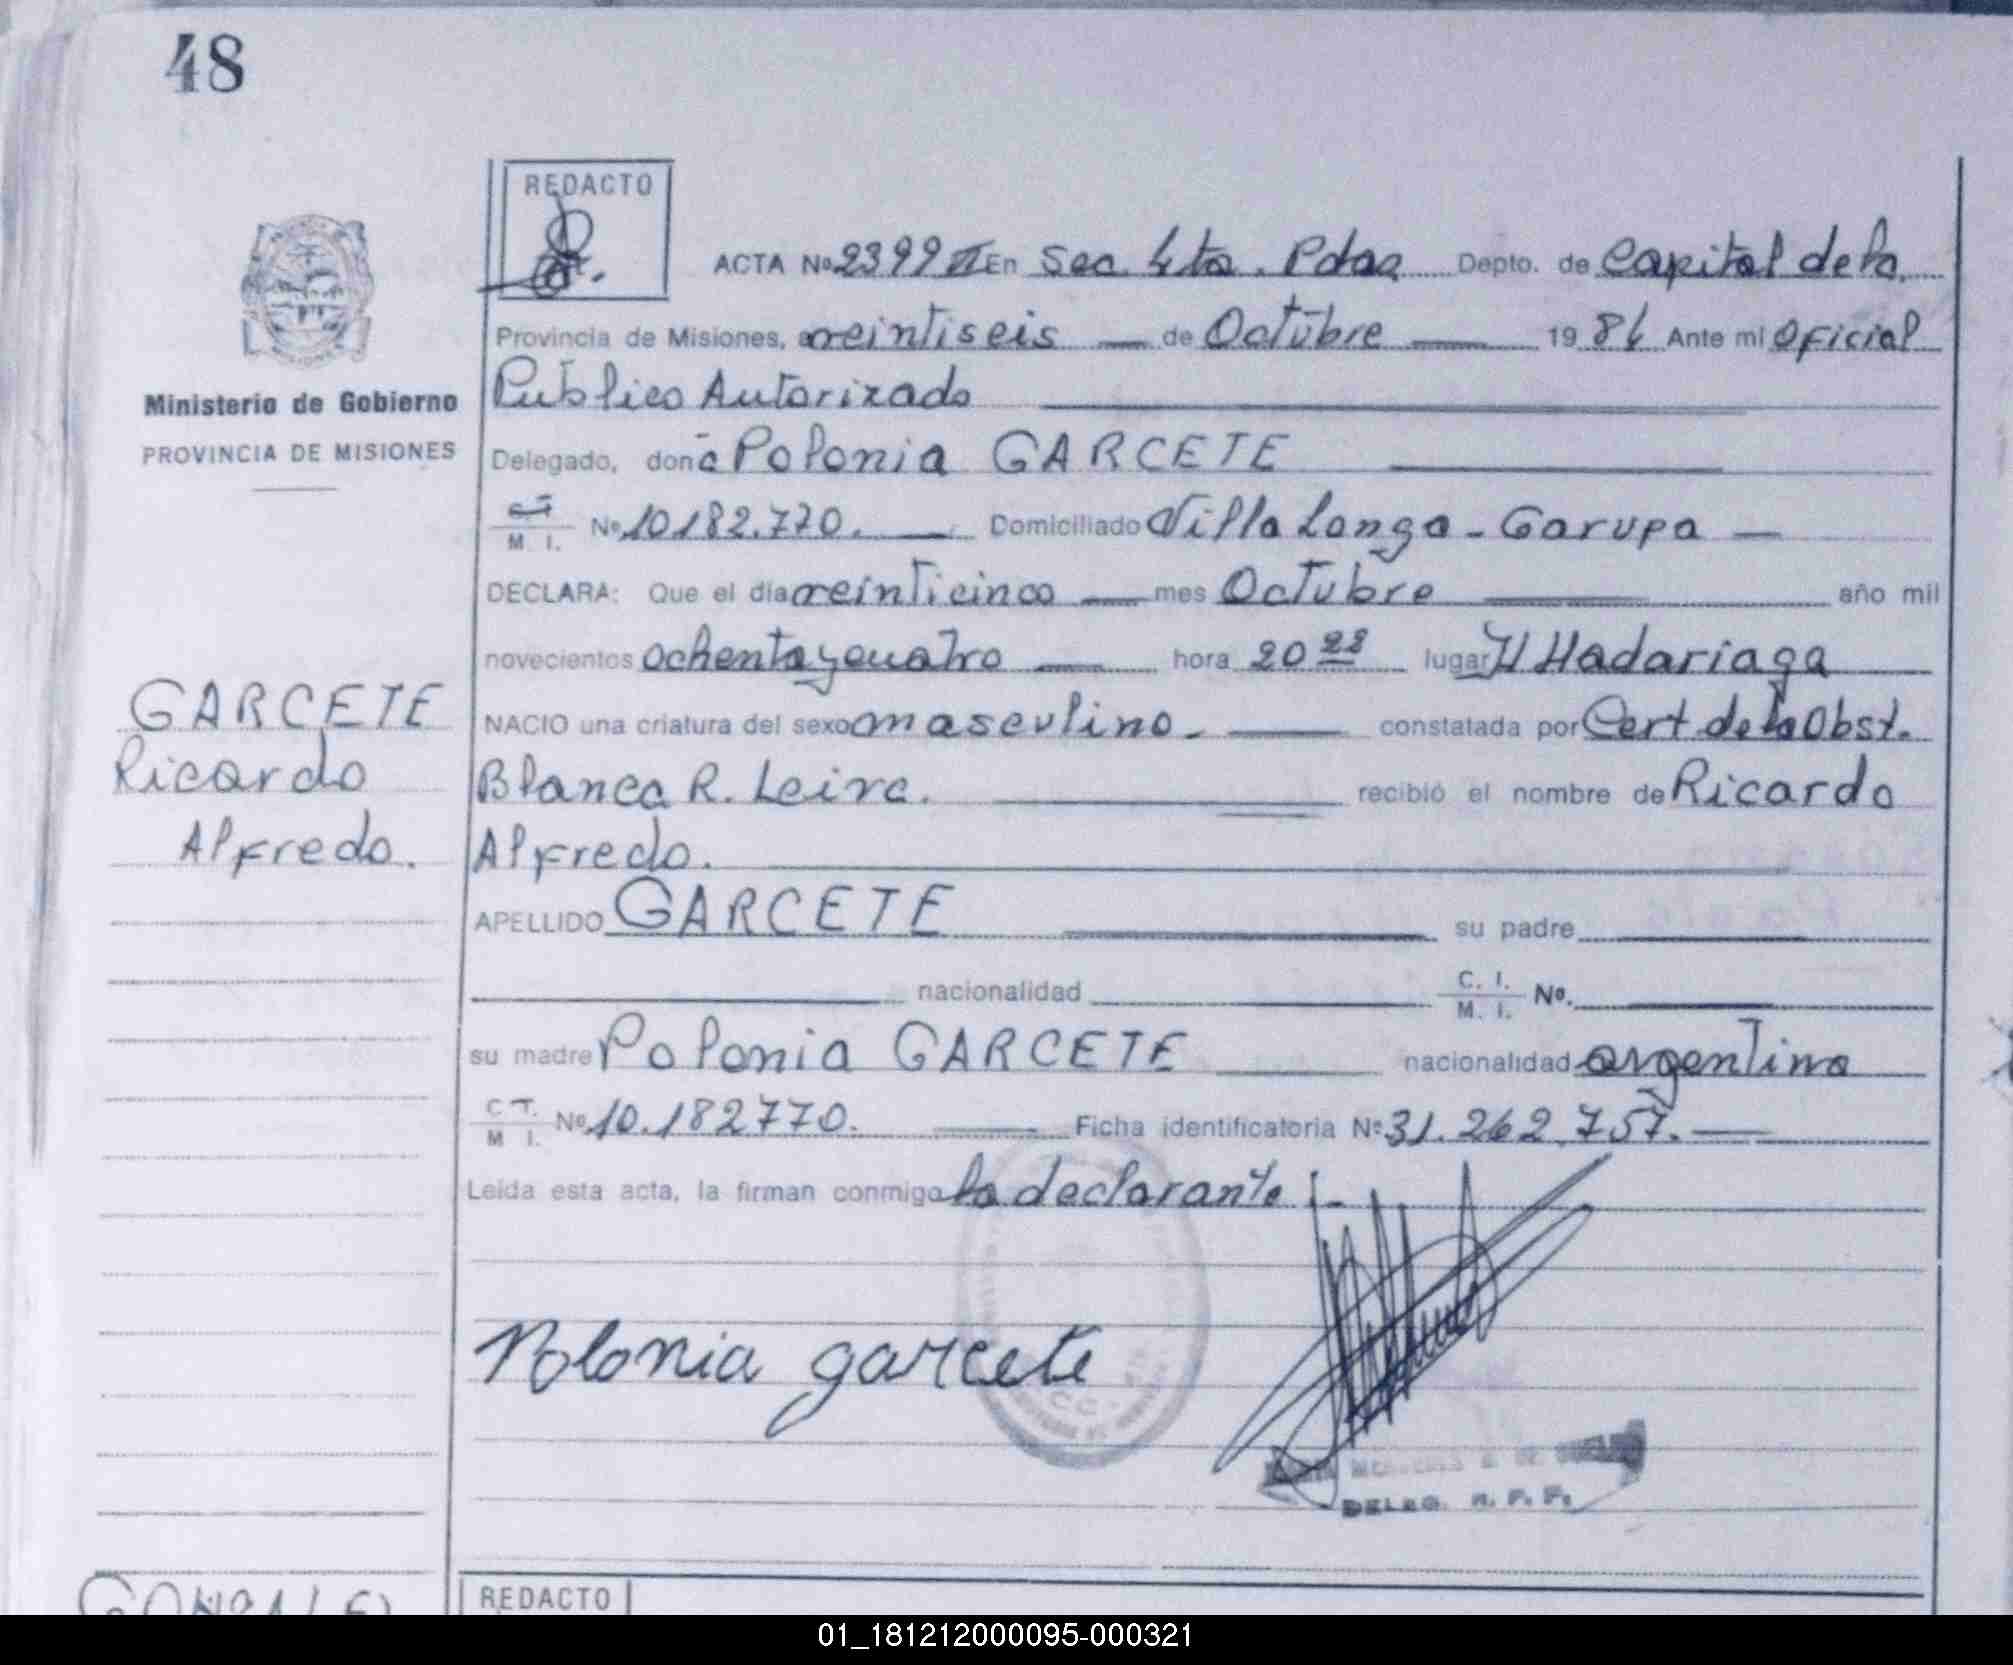 48
REDACTO
ACTA Nº 2399 II En Sec. 4ta. Pdas Depto. de Capital de la
Provincia de Misiones, a veintiseis de Octubre 1984 Ante mi Oficial
Publico Autorizado
Ministerio de Gobierno
PROVINCIA DE MISIONES
Delegado, doña Polonia GARCETE
M. I. Nº 10182.770. Domiciliado Villa Longa - Garupa
DECLARA: Que el día veinticinco mes Octubre año mil
novecientos ochenta y cuatro hora 20 22 lugar H Madariaga
NACIO una criatura del sexo masculino. constatada por Cert de la Obst.
Blanca R. Leiva. recibió el nombre de Ricardo
Alfredo.
GARCETE
Ricardo
Alfredo.
APELLIDO GARCETE su padre
nacionalidad C. I. M. I. Nº.
su madre Polonia GARCETE nacionalidad argentina
C I. M I. Nº 10.182770. Ficha identificatoria Nº 31.262.757.
Leída esta acta, la firman conmigo la declarante
Polonia garcete
DELEG. R. P. P.
REDACTO
01_181212000095-000321